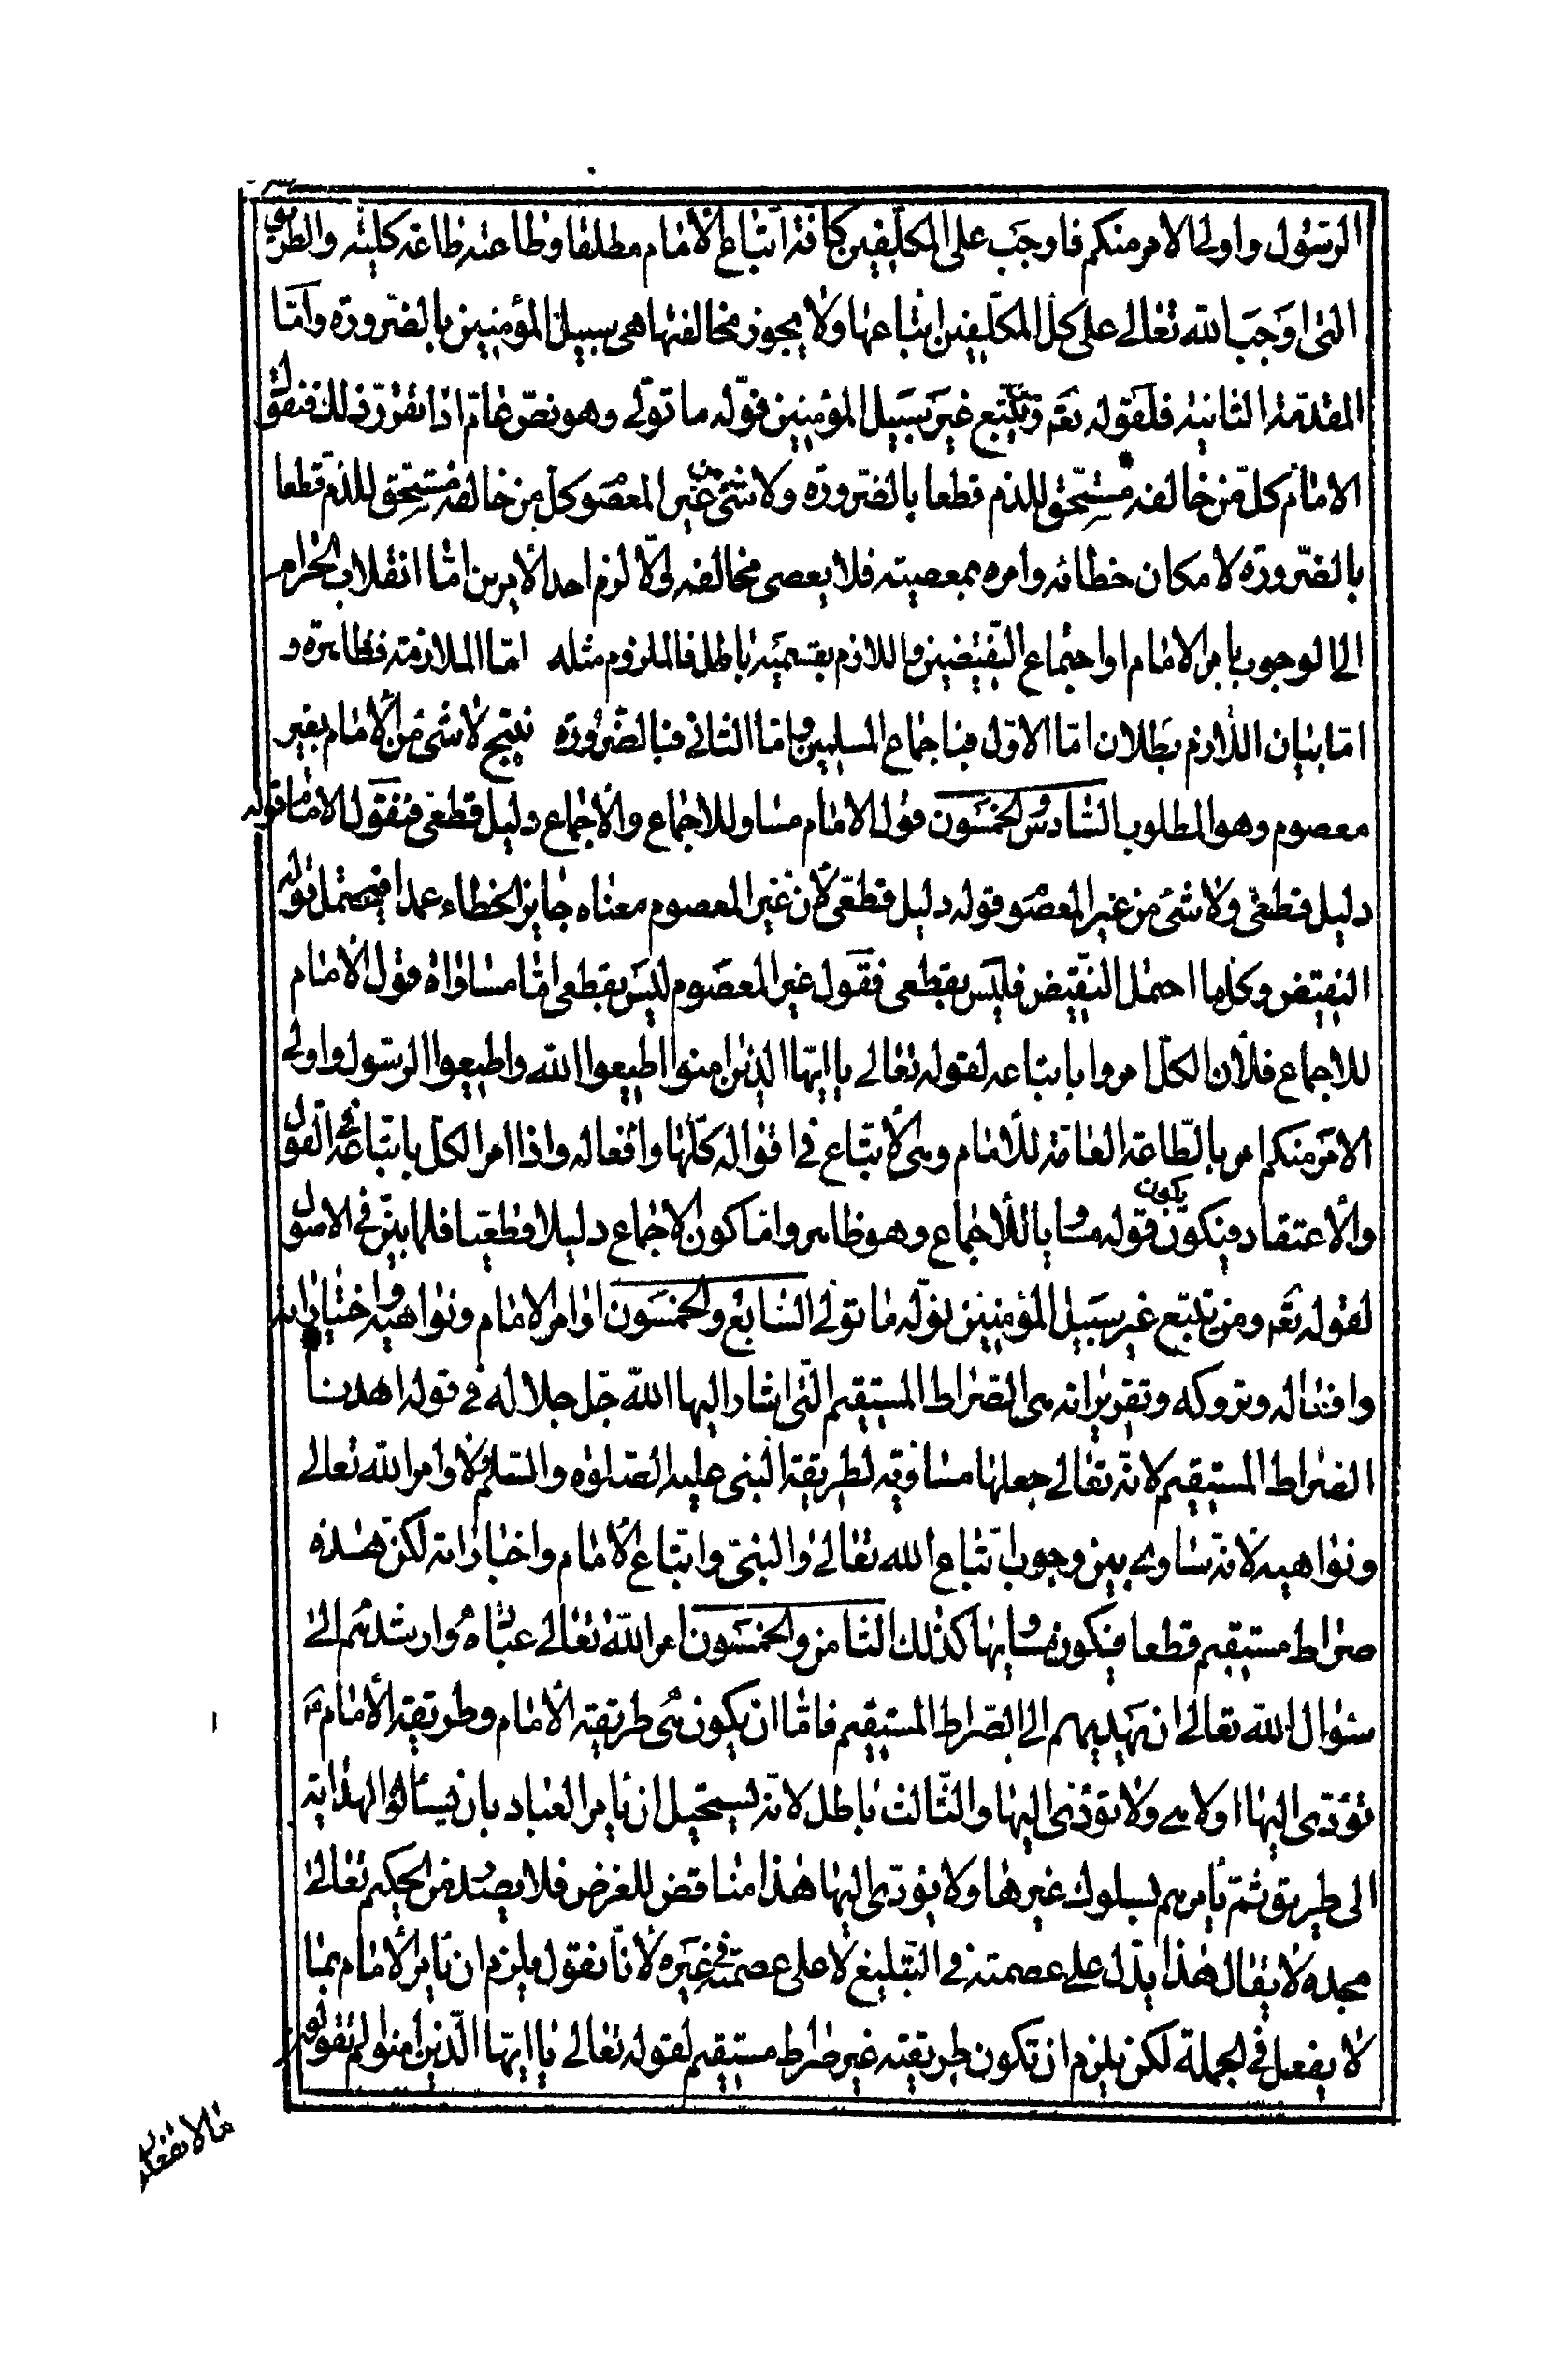 الرسول واولی الامر منكم فاوجب علی المكلفین كافة اتباع الامام مطلقا وطاعته طاعة كلیة والطریق
التی اوجب الله تعالی علی كل المكلفین اتباعها ولا یجوز مخالفتها هی سبیل المؤمنین بالضرورة واما
المقدمة الثانیة فلقوله تعم ویتبع غیر سبیل المؤمنین نوله ما تولی وهو نص عام اذا تقرر ذلك فنقول
الامام كل من خالفه مستحق للذم قطعا بالضرورة ولا شئ من غیر المعصو كل من خالفه مستحق للذم قطعا
بالضرورة لامكان خطائه وامره بمعصیته فلا یعصی مخالفه والا لزم احد الامرین اما انقلاب الحرام
الی الوجوب بامر الامام او اجتماع النقیضین واللازم بقسمیه باطل فالملزوم مثله اما الملازمة فظاهرة و
اما بیان اللازم بطلان اما الاول فباجماع المسلمین واما الثانی فبالضرورة ینتج لا شئ من الامام بغیر
معصوم وهو المطلوب السادس والخمسون قول الامام مساو للاجماع والاجماع دلیل قطعی فنقول الامام قوله
دلیل قطعی ولا شئ من غیر المعصو قوله دلیل قطعی لان غیر المعصوم معناه جایز الخطاء عمدا فیحتمل قوله
النقیض وكلما احتمل النقیض فلیس بقطعی فقول غیر المعصوم لیس بقطعی اما مساواة قول الامام
للاجماع فلان الكل امروا باتباعه لقوله تعالی یا ایها الذین امنوا اطیعوا الله واطیعوا الرسول واولی
الامر منكم امر بالطاعة العامة للامام وهی الاتباع فی اقواله كلها وافعاله واذا امر الكل باتباعه فی القول
والاعتقاد فیكون یكون قوله مساویا للاجماع وهو ظاهر واما كون الاجماع دلیلا قطعیا فلما بین فی الاصول
لقوله تعم ومن یتبع غیر سبیل المؤمنین نوله ما تولی السابع والخمسون اوامر الامام ونواهیه واختیاراته
وافعاله وتروكه وتقریراته هی الصراط المستقیم التی اشار الیها الله جل جلاله فی قوله اهدنا
الصراط المستقیم لانه تعالی جعلها مساویة لطریقة النبی علیه الصلوة والسلم ولاوامر الله تعالی
ونواهیه لانه ساوی بین وجوب اتباع الله تعالی والنبی واتباع الامام واخباراته لكن هذه
صراط مستقیم قطعا فیكون مساویها كذلك الثامن والخمسون امر الله تعالی عباده وارشدهم الی
سؤال الله تعالی ان یهدیهم الی الصراط المستقیم فاما ان یكون هی طریقة الامام وطریقة الامام
تؤدی الیها او لا هی ولا تؤدی الیها والثالث باطل لانه یستحیل ان یامر العباد بان یسألوا الهدایة
الی طریق ثم یأمرهم بسلوك غیرها ولا یؤدی الیها هذا مناقض للغرض فلا یصدر من الحكیم تعالی
مجده لا یقال هذا یدل علی عصمته فی التبلیغ لا علی عصمته فی غیره لانا نقول یلزم ان یامر الامام بما
لا یفعل فی الجملة لكن یلزم ان تكون طریقته غیر صراط مستقیم لقوله تعالی یا ایها الذین امنوا لم تقولون
ما لا تفعلون